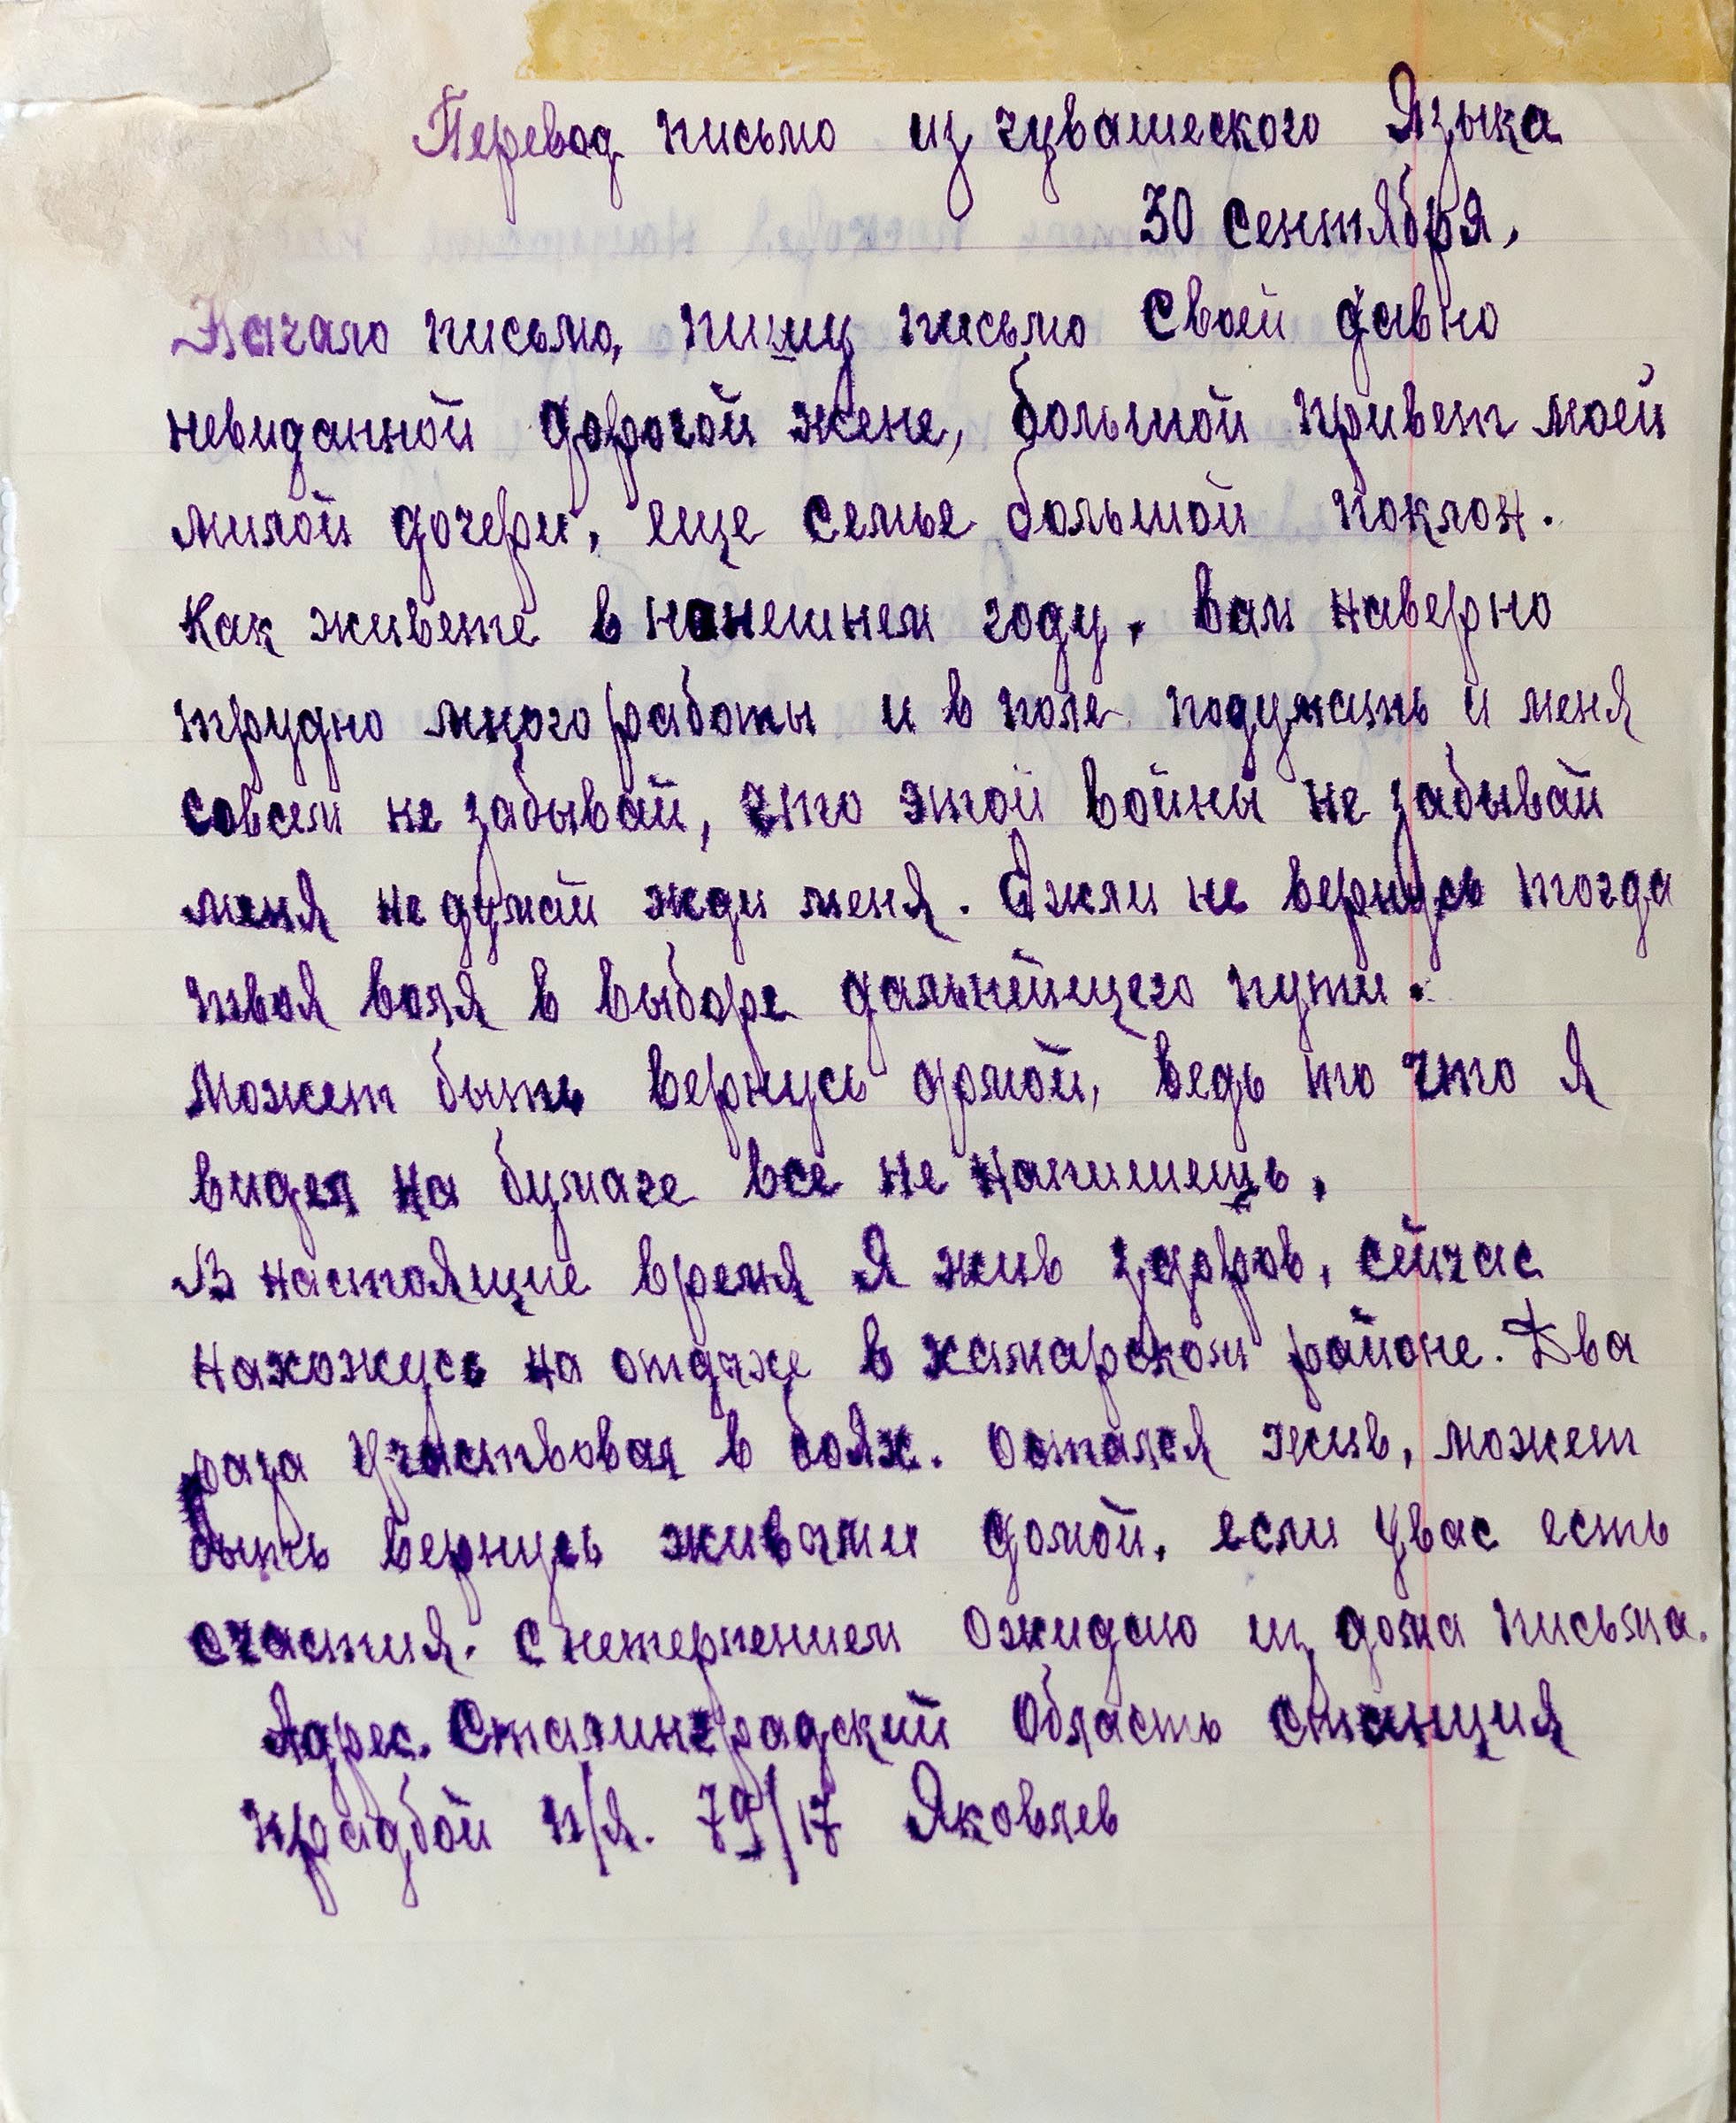 Перевод письмо из чувашеского Языка
30 Сентября,
Начало письмо, пишу письмо Своей давно
невиданной дорогой жене, большой привет моей
милой дочери, еще семье большой поклон.
Как живете в нонешнем году, вам наверно
трудно много работы и в поле подумать и меня
совсем не забывай, что этой войны не забывай
меня не думай жди меня. Ежли не вернусь тогда
твоя воля в выборе дальнейщего пути.
Может быть вернусь домой, ведь то что Я
видел на бумаге все не напишешь,
В настоящие время Я жив здоров, сейчас
нахожусь на отдыхе в районе. Два
раза участвовал в боях. остался жив, может
быть вернусь живыми домой, если увас есть
счастия. С нетерпением ожидаю из дома письма.
Адрес. Сталинградский Область станция
п/я. 79/17 Яковлев